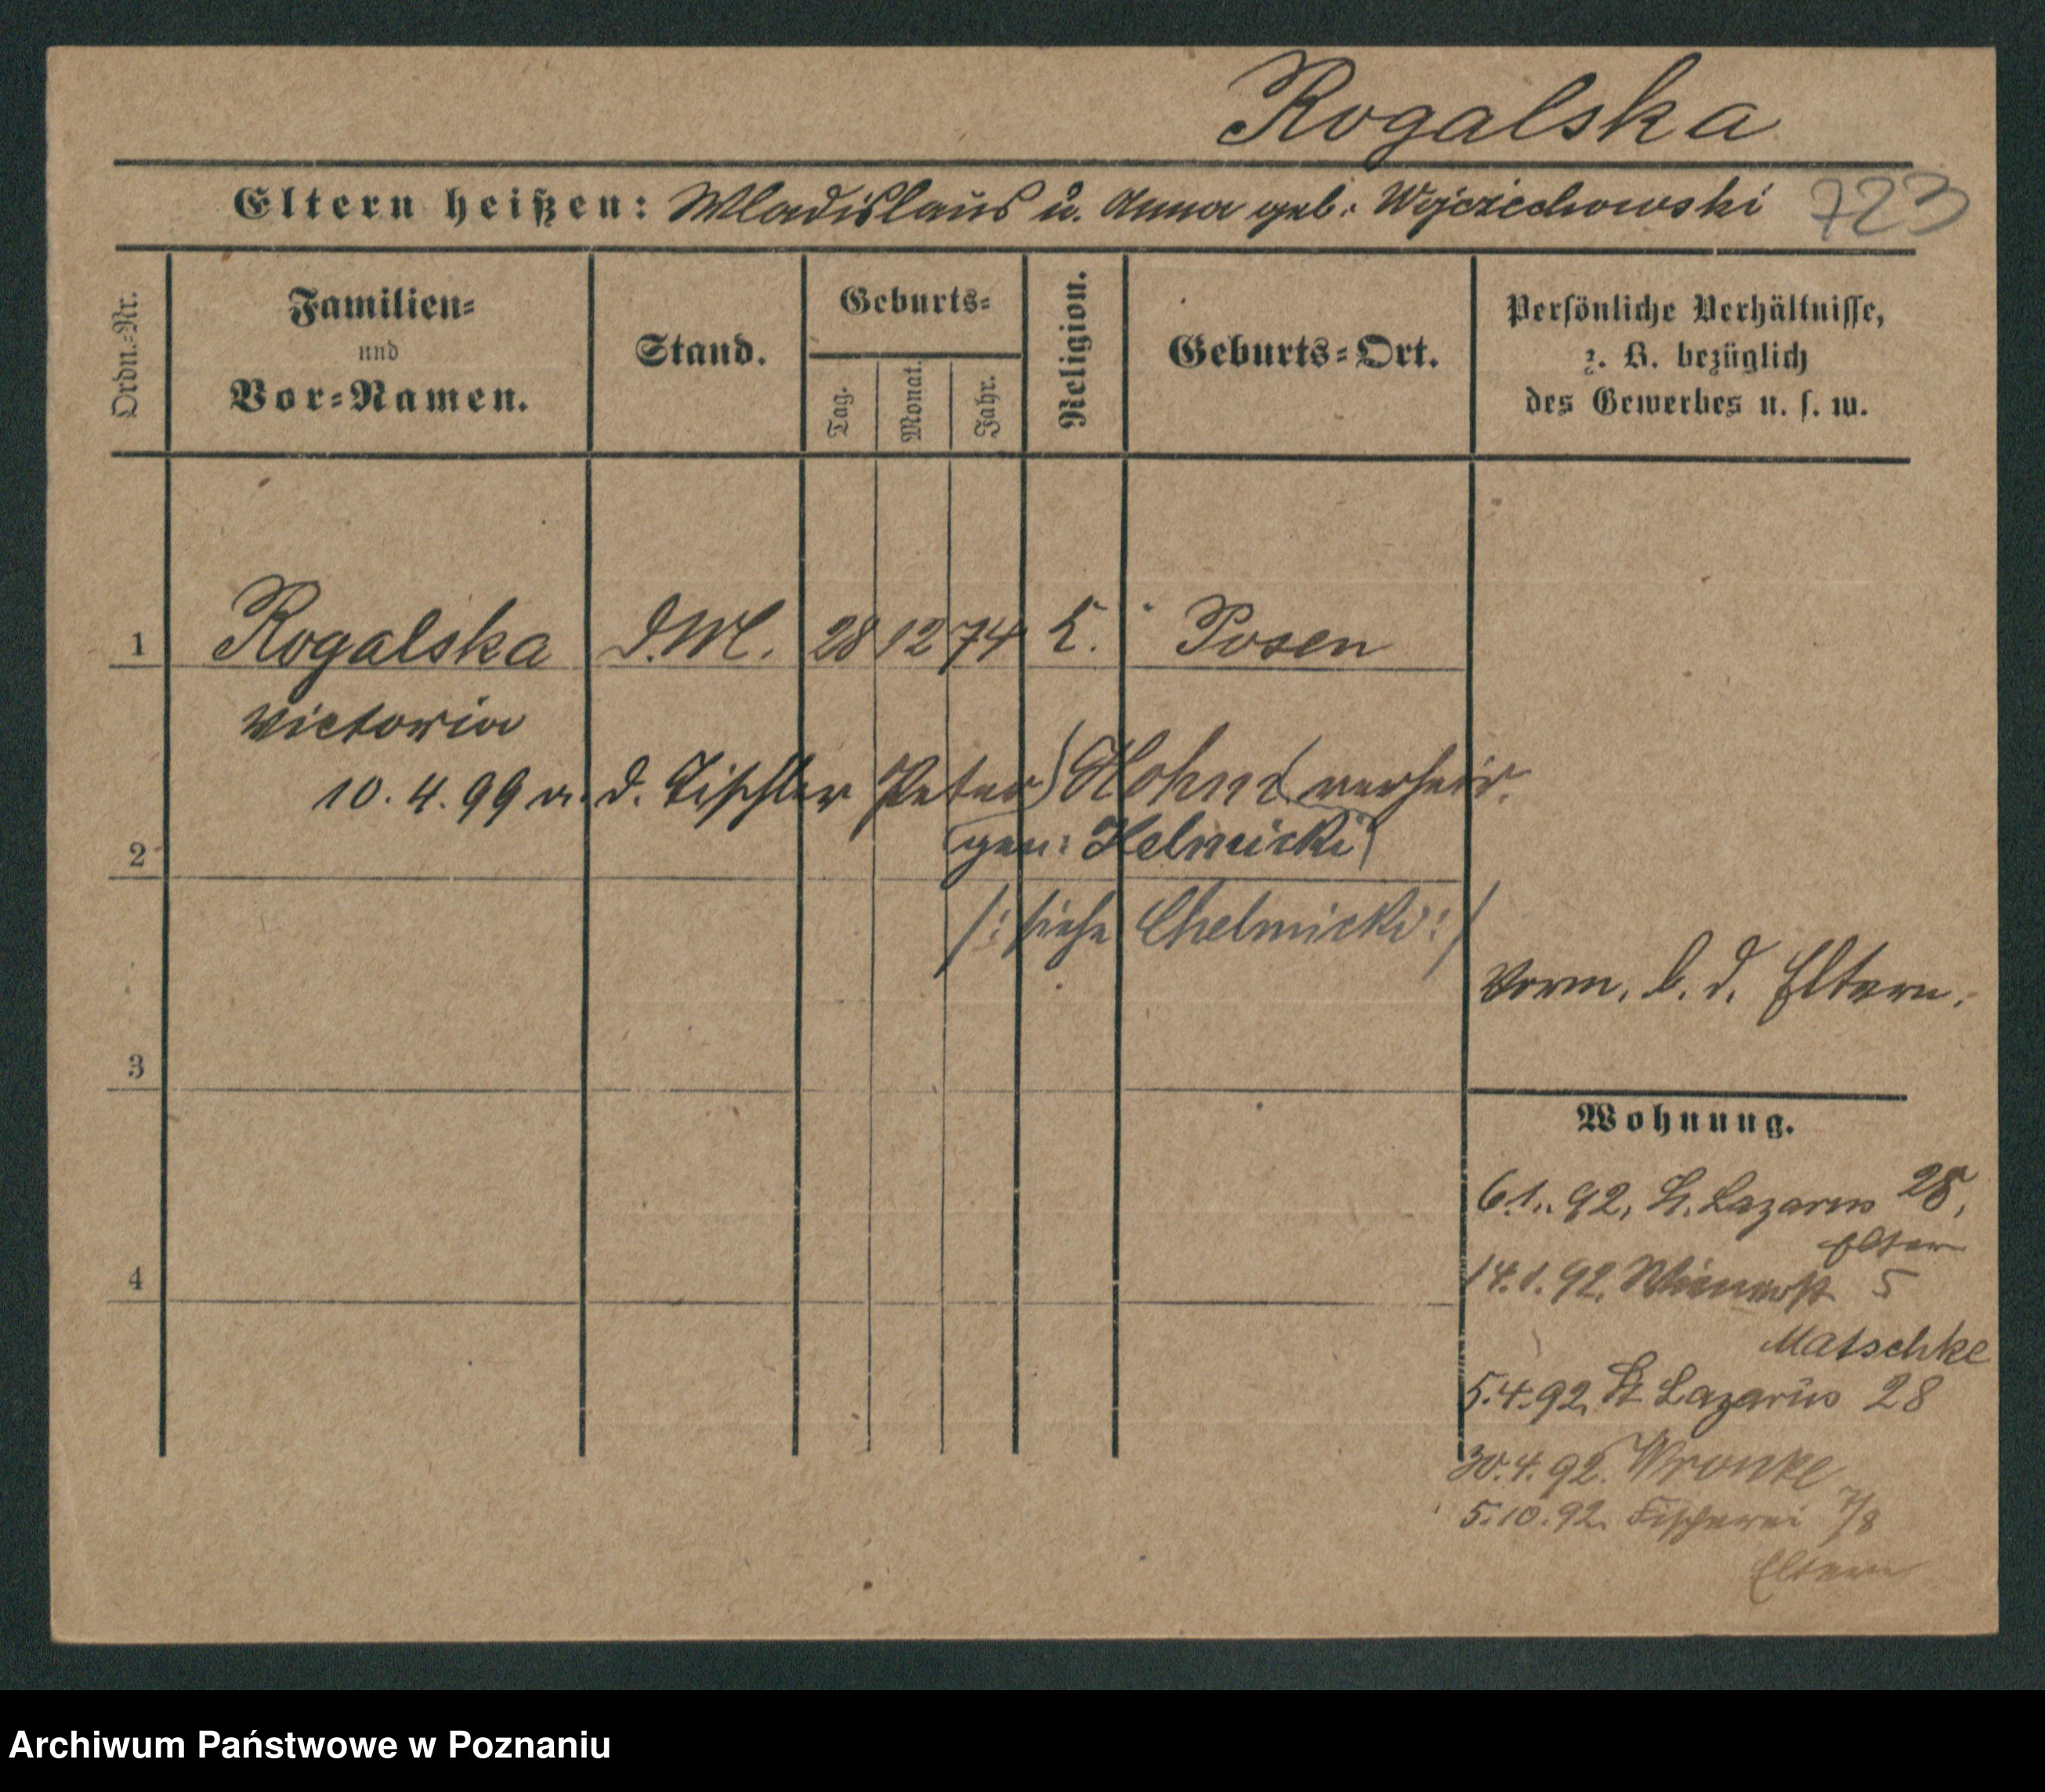 Rogalska
Eltern heißen: Wladislaus u. Anna geb. Wojciechowski 723
Ordn.-Nr.
Familien-
und
Vor-Namen.
Stand.
Geburts-
Tag.
Monat.
Jahr.
Religion.
Geburts-Ort.
Persönliche Verhältnisse,
z. B. bezüglich
des Gewerbes u. s. w.
1 Rogalska D.M. 28 12 74 K. Posen
Victoria
10. 4. 99 m. d. Tischler Peter verheir.
2 gen: Helmicki
/: siehe Chelmicki :/
Vorm. b. d. Eltern.
3
Wohnung.
6.1. 92, St. Lazarus 28,
Eltern
4
14.1.92. 5
Matschke
5.4.92, St Lazarus 28
30.4.92. Wronke
5.10.92. Fischerei 7/8
Eltern
Archiwum Państwowe w Poznaniu